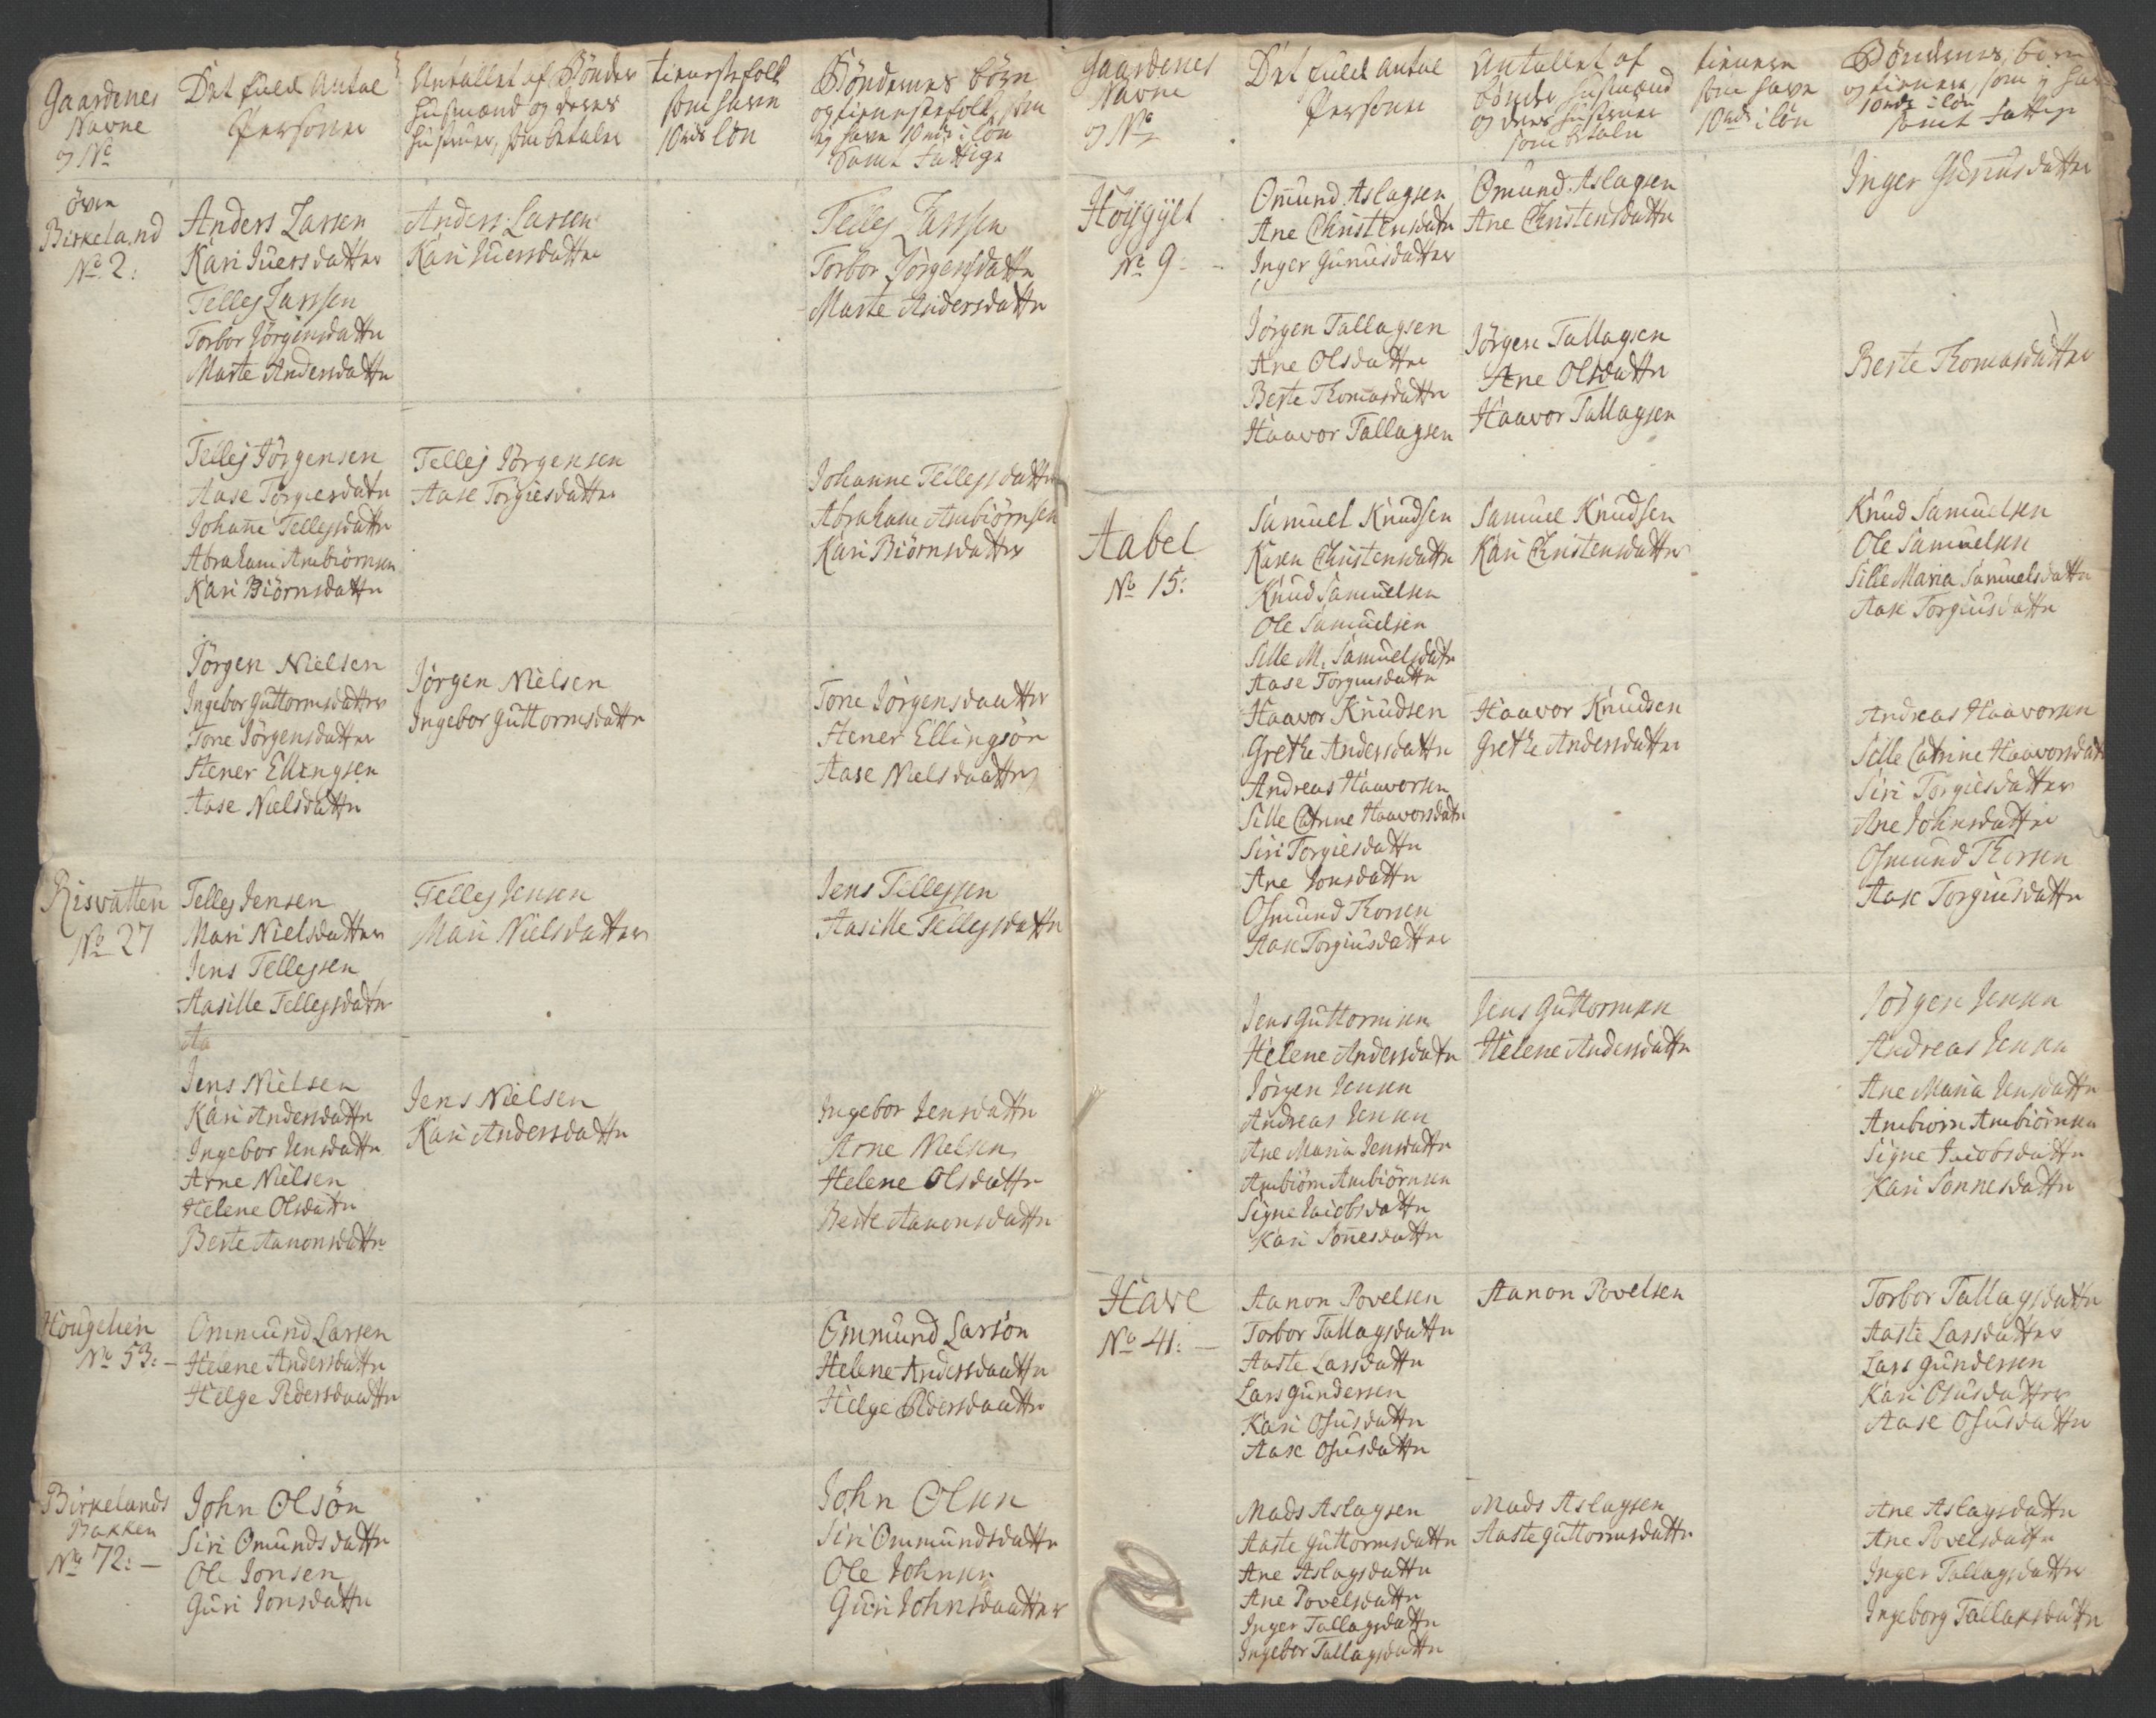 Gaardenes
Navne
og No
Det fuld Antal
Personer
Antallet af Bönder
Husmænd og deres
Hustruer, som betaler
tienestefolk
som have
10 rdr lön
Böndernes börn
og tienestefolk som
ej have 10 rdr i lön
Samt fattige
öven
Birkeland
No 2:
Anders Larsen
Kari Iuersdatter
Tellej Larssen
Torbor Jörgensdatter
Marte Andersdatter
Anders Larsen
Kari Iuersdatter
Tellej Larssen
Torbor Jörgensdatter
Marte Andersdatter
Tellej Jörgensen
Aase Torgiesdatter
Johane Tellejsdatter
Abraham Ambiörnsen
Kari Biörnsdatter
Tellej Jörgensen
Aase Torgiesdatter
Johanne Tellejsdatter
Abraham Ambiörnsen
Kari Biörnsdatter
Jörgen Nielsen
Ingebor Guttormsdatter
Tone Jörgensdatter
Stener Ellingsen
Aase Nielsdatter
Jörgen Nielsen
Ingebor Guttormsdatter
Tone Jörgensdaatter
Stener Ellingsön
Aase Nielsdaatter
Risvatten
No 27
Tellej Jensen
Mari Nielsdatter
Jens Tellejsen
Aasille Tellejsdatter
Aa
Tellej Jensen
Mari Nielsdatter
Jens Tellejsen
Aasille Tellejsdatter
Jens Nielsen
Kari Andersdatter
Ingebor Jensdatter
Arne Nielsen
Helene Olsdatter
Berte Aanonsdatter
Jens Nielsen
Kari Andersdatter
Ingebor Jensdatter
Arne Nielsen
Helene Olsdatter
Berte Aanonsdatter
Hougelien
No 53:
Ommund Larsen
Helene Andersdatter
Helge Pedersdaatter
Ommund Larsön
Helene Andersdaatter
Helge Pedersdaatter
Birkelands
Bakken
No 72:
John Olsön
Siri Omundsdatter
Ole Jonsen
Guri Jonsdatter
John Olsen
Siri Ommundsdatter
Ole Johnsen
Guri Johnsdaatter
Gaardenes
Navne
og No
Det fuld Antal
Personer
Antallet af
bönder Husmænd
og deres Hustruer
som betaler
tienere
som have
10 rdr i lön
Böndernes börn
og tienere, som ej have
10 rdr i lön
samt fattige
Höygylt
No 9
Omund Aslagsen
Ane Christensdatter
Inger Gunusdatter
Omund Aslagsen
Ane Christensdatter
Inger Gunusdatter
Jörgen Tallagsen
Ane Olsdatter
Berte Thomasdatter
Haavor Tallagsen
Jörgen Tallagsen
Ane Olsdatter
Haavor Tallagsen
Berte Thomasdatter
Aabel
No 15:
Samuel Knudsen
Karen Christensdatter
Knud Samuelsen
Ole Samuelsen
Sille M. Samuelsdatter
Aase Torgiusdatter
Samuel Knudsen
Kari Christensdatter
Knud Samuelsen
Ole Samuelsen
Sille Maria Samuelsdatter
Aase Torgiusdatter
Haavor Knudsen
Grethe Andersdatter
Andreas Haavorsen
Sille Catrine Haavorsdatter
Siri Torgiesdatter
Ane Jonsdatter
Osmund Thorsen
Aase Torgiusdatter
Haavor Knudsen
Grethe Andersdatter
Andreas Haavorsen
Sille Catrine Haavorsdatter
Siri Torgiesdatter
Ane Johnsdatter
Osmund Thorsen
Aase Torgiusdatter
Jens Guttormsen
Helene Andersdatter
Jörgen Jensen
Andreas Jensen
Ane Maria Jensdatter
Ambiörn Ambiörnsen
Signe Jacobsdatter
Kari Sonnesdatter
Jens Guttormsen
Helene Andersdatter
Jörgen Jensen
Andreas Jensen
Ane Maria Jensdatter
Ambiorn Ambiörnsen
Signe Jacobsdatter
Kari Sonnesdatter
Have
No 41:
Aanon Povelsen
Torbor Tallagsdatter
Aaste Larsdatter
Lars Gundersen
Kari Osusdatter
Aase Osusdatter
Aanon Povelsen
Torbor Tallagsdatter
Aaste Larsdatter
Lars Gundersen
Kari Osusdatter
Aase Osusdatter
Mads Aslagsen
Aaste Guttormsdatter
Ane Aslagsdatter
Ane Povelsdatter
Inger Tallagsdatter
Ingebor Tallagsdatter
Mads Aslagsen
Aaste Guttormsdatter
Ane Aslagsdatter
Ane Povelsdatter
Inger Tallagsdatter
Ingeborg Tallaksdatter